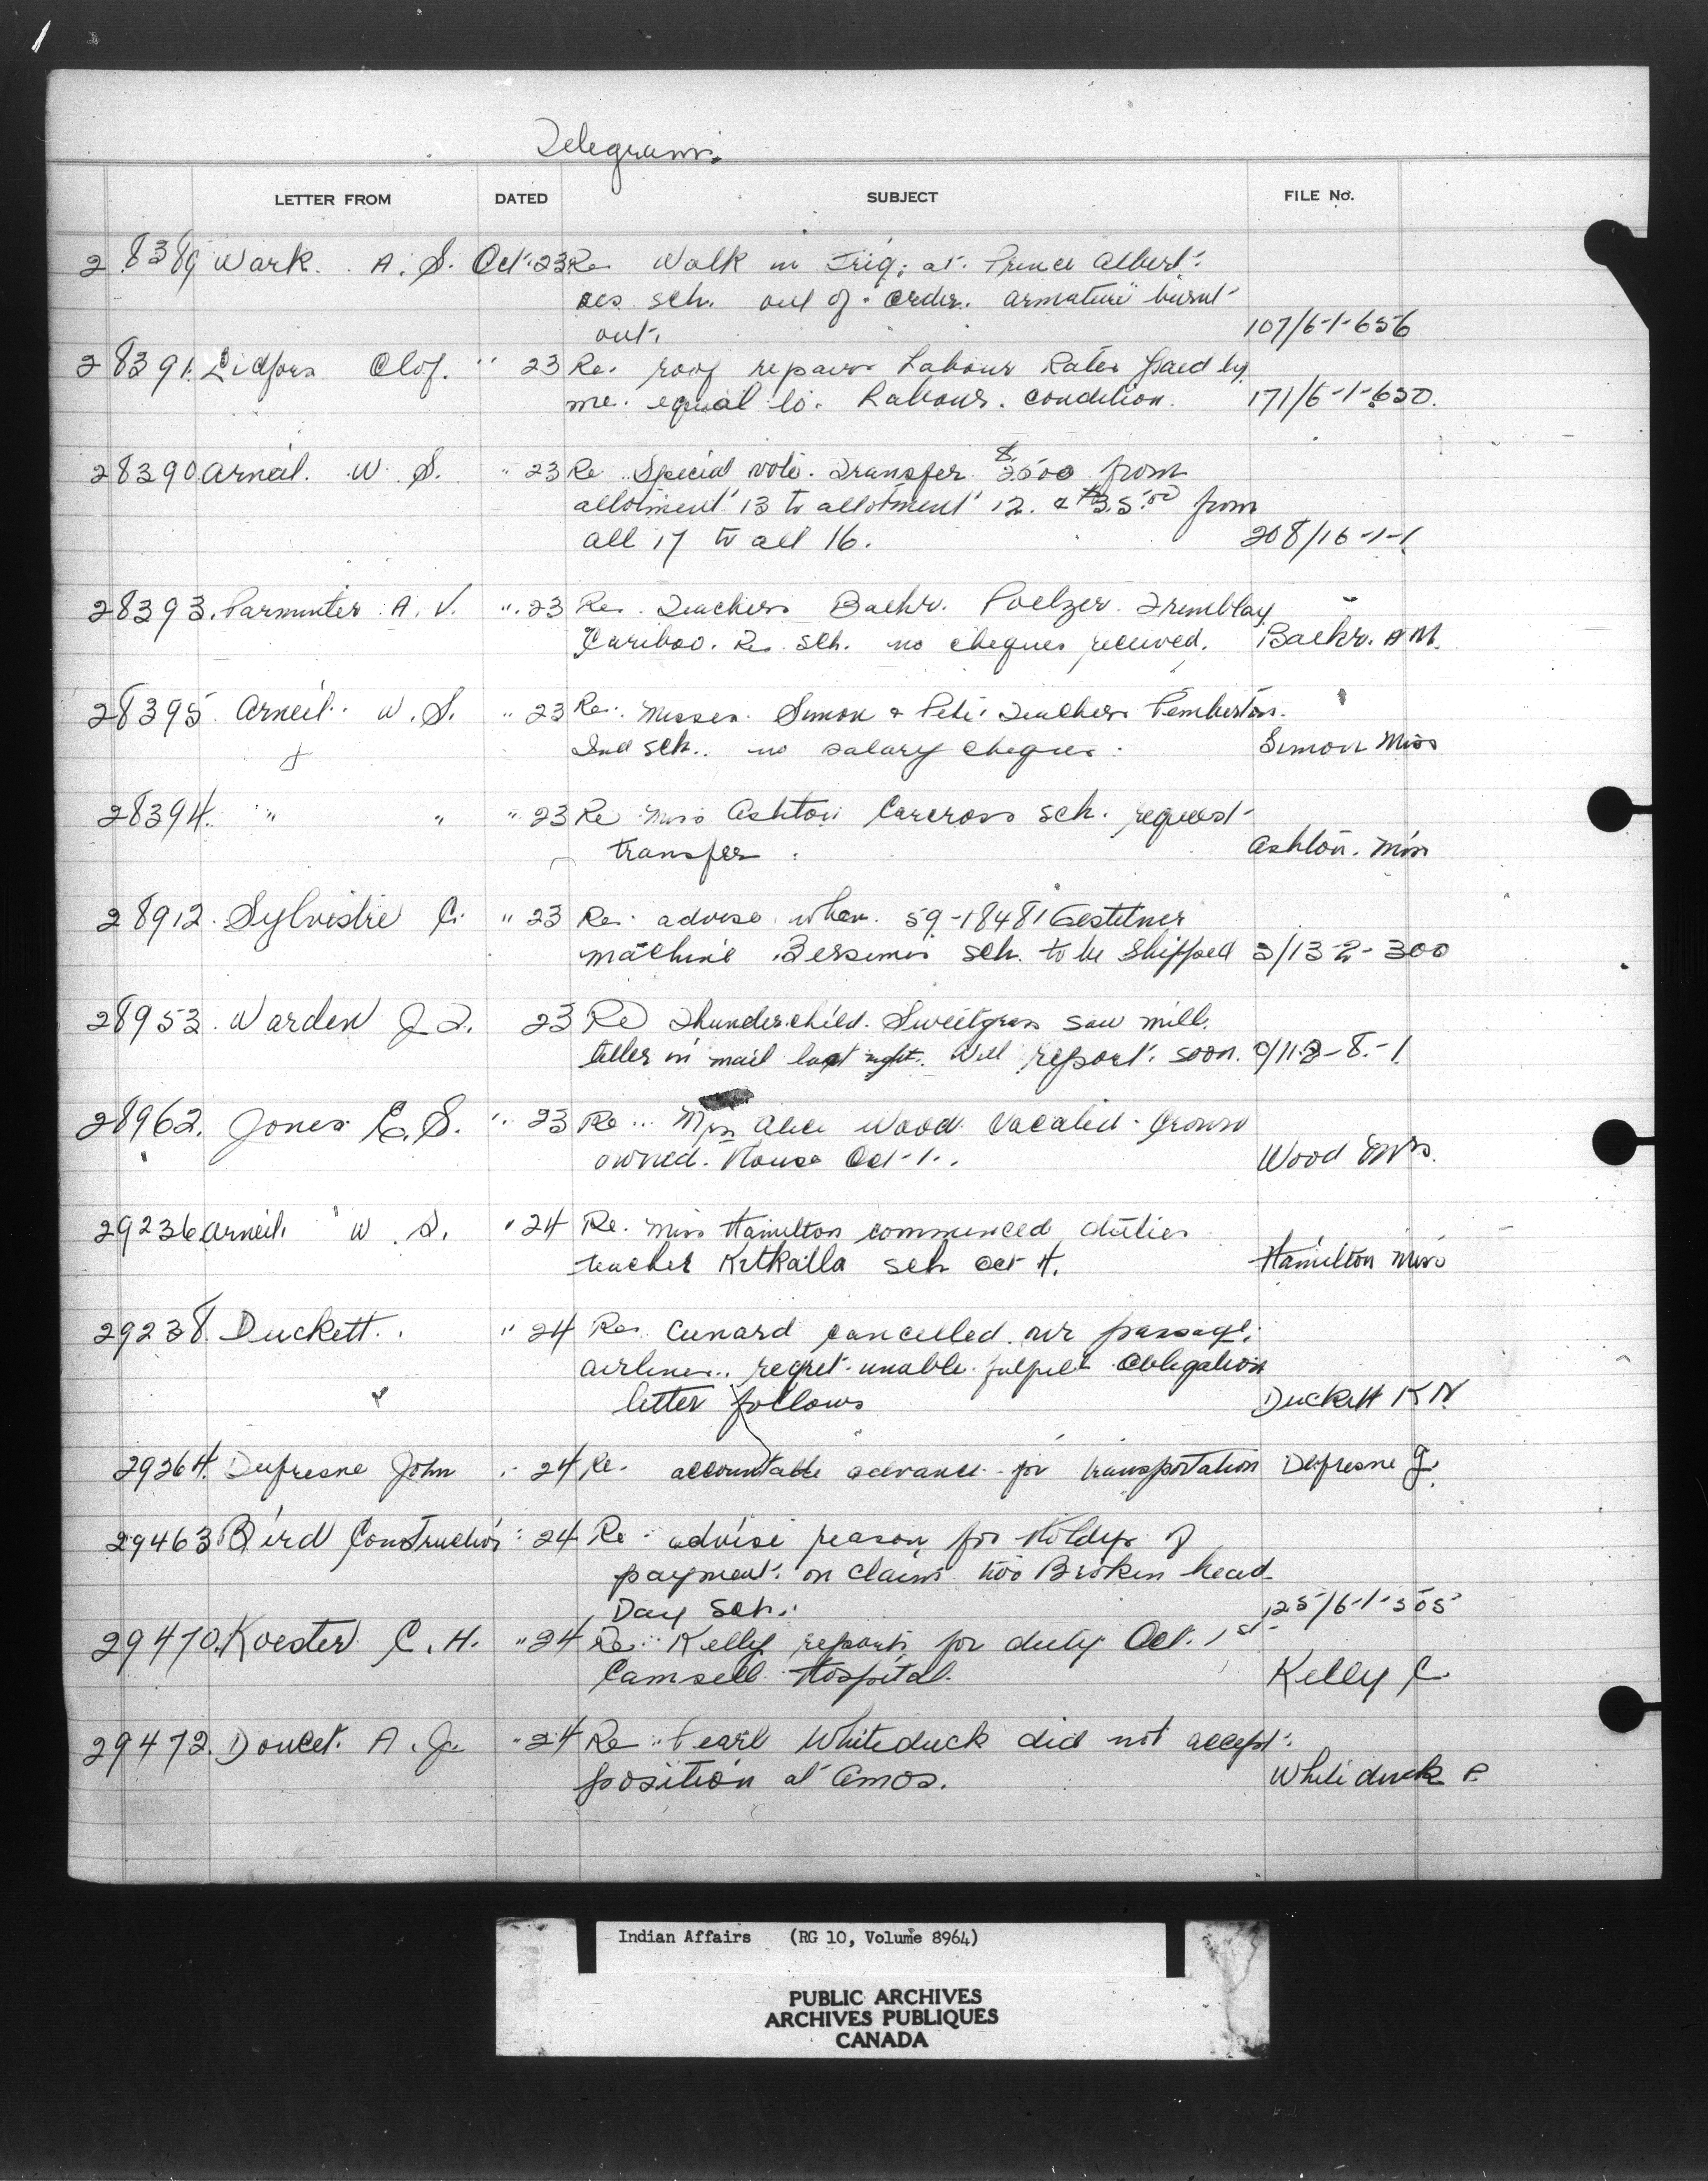 Telegrams.
LETTER FROM DATED SUBJECT FILE No.
28389 Wark. A. S. Oct. 23 Re Walk in Frig. at. Prince Albert.
res sch. out of order. armature burnt
out. 107/6-1-656
28391. Lidfors Olof. " 23 Re. roof repairs Labour Rates paid by
me. equal to. Labour. condition. 171/6-1-650.
28390 Arneil. W. S. " 23 Re Special vote. Transfer $2500 from
allotment 13 to allotment 12. & $35.00 from
all 17 to all 16. 208/16-1-1
28393. Parminter A. V. " 23 Re. Teachers Baehr. Poelzer. Tremblay
Cariboo. Res. sch. no cheques received. Baehr. A M.
28395 Arneil. W. S. " 23 Re. Misses. Simon & Pete. Teachers Pemberton.
Ind sch. no salary cheques. Simon Miss
28394. " " " 23 Re Miss Ashton Carcross sch. request
transfer. Ashton. Miss
28912. Sylvestre C. " 23 Re. advise when. 59-18481 Gestetner
machine Bersimis sch. to be shipped 3/13-2-300
28953. Warden J. T. 23 Re Thunderchild. Sweetgrass saw mill.
letter in mail last night. Will report. soon. 9/11-8-1
28962. Jones E. S. " 23 Re Mrs Alice Wood Vacated Crown
owned. House Oct. 1. Wood Mrs.
29236 Arneil. W. S. " 24 Re. Miss Hamilton commenced duties
teacher Kitkatla sch Oct 4. Hamilton Miss
29238. Duckett. " 24 Re. Cunard cancelled our passage.
airlines. regret unable fulfill obligation
letter follows Duckett K N
29264. Dufresne John " 24 Re. accountable advance for transportation Dufresne J.
29463 Bird Construction " 24 Re. advise reason for holdup of
payment. on claim two Broken head
Day Sch. 125/6-1-505
29470. Koester C. H. " 24 Re. Kelly reports for duty Oct. 1st.
Camsell Hospital. Kelly C.
29472. Doucet. A. J. " 24 Re Pearl Whiteduck did not accept.
position at Amos. Whiteduck P.
Indian Affairs (RG 10, Volume 8964)
PUBLIC ARCHIVES
ARCHIVES PUBLIQUES
CANADA